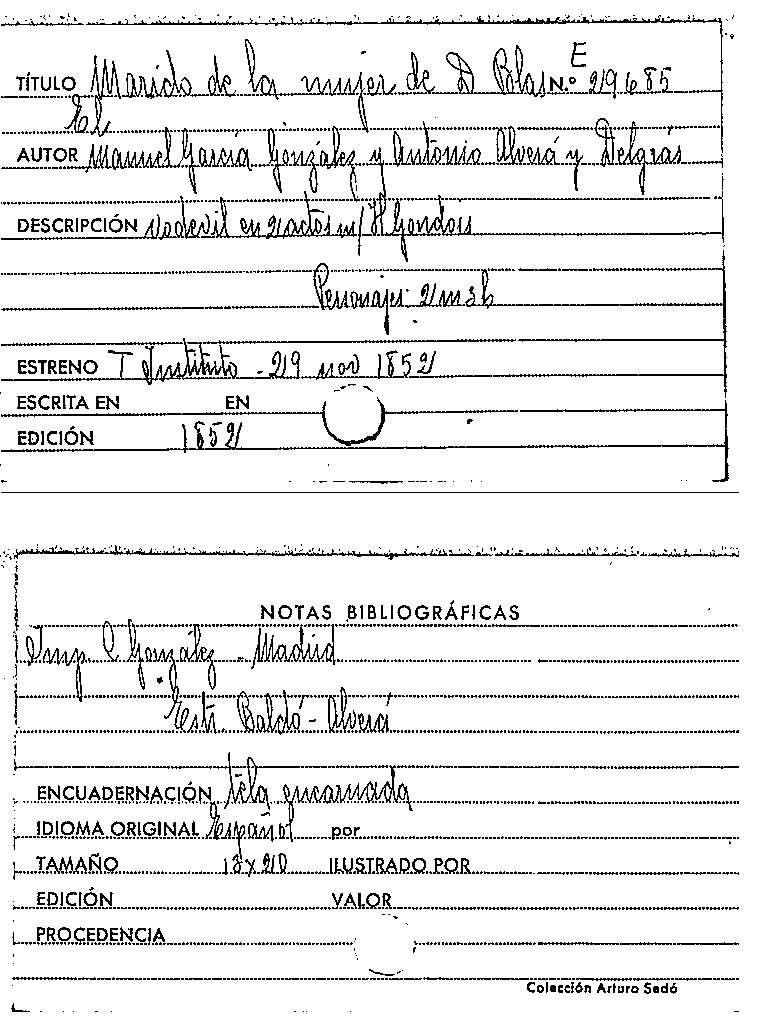 E
TÍTULO Marido de la mujer de D Blas N.º 29685
El
AUTOR Manuel García González y Antonio Alverá y Delgrás
DESCRIPCIÓN Vodevil en 2 actos m/ H Gondois
Personajes: 2 m 3 h
ESTRENO T Instituto - 29 nov 1852
ESCRITA EN EN
EDICIÓN 1852
NOTAS BIBLIOGRÁFICAS
Imp. C González - Madrid
Estr. Baldó - Alverá
ENCUADERNACIÓN tela encarnada
IDIOMA ORIGINAL Español por
TAMAÑO 13 x 20 ILUSTRADO POR
EDICIÓN VALOR
PROCEDENCIA
Colección Arturo Sedó